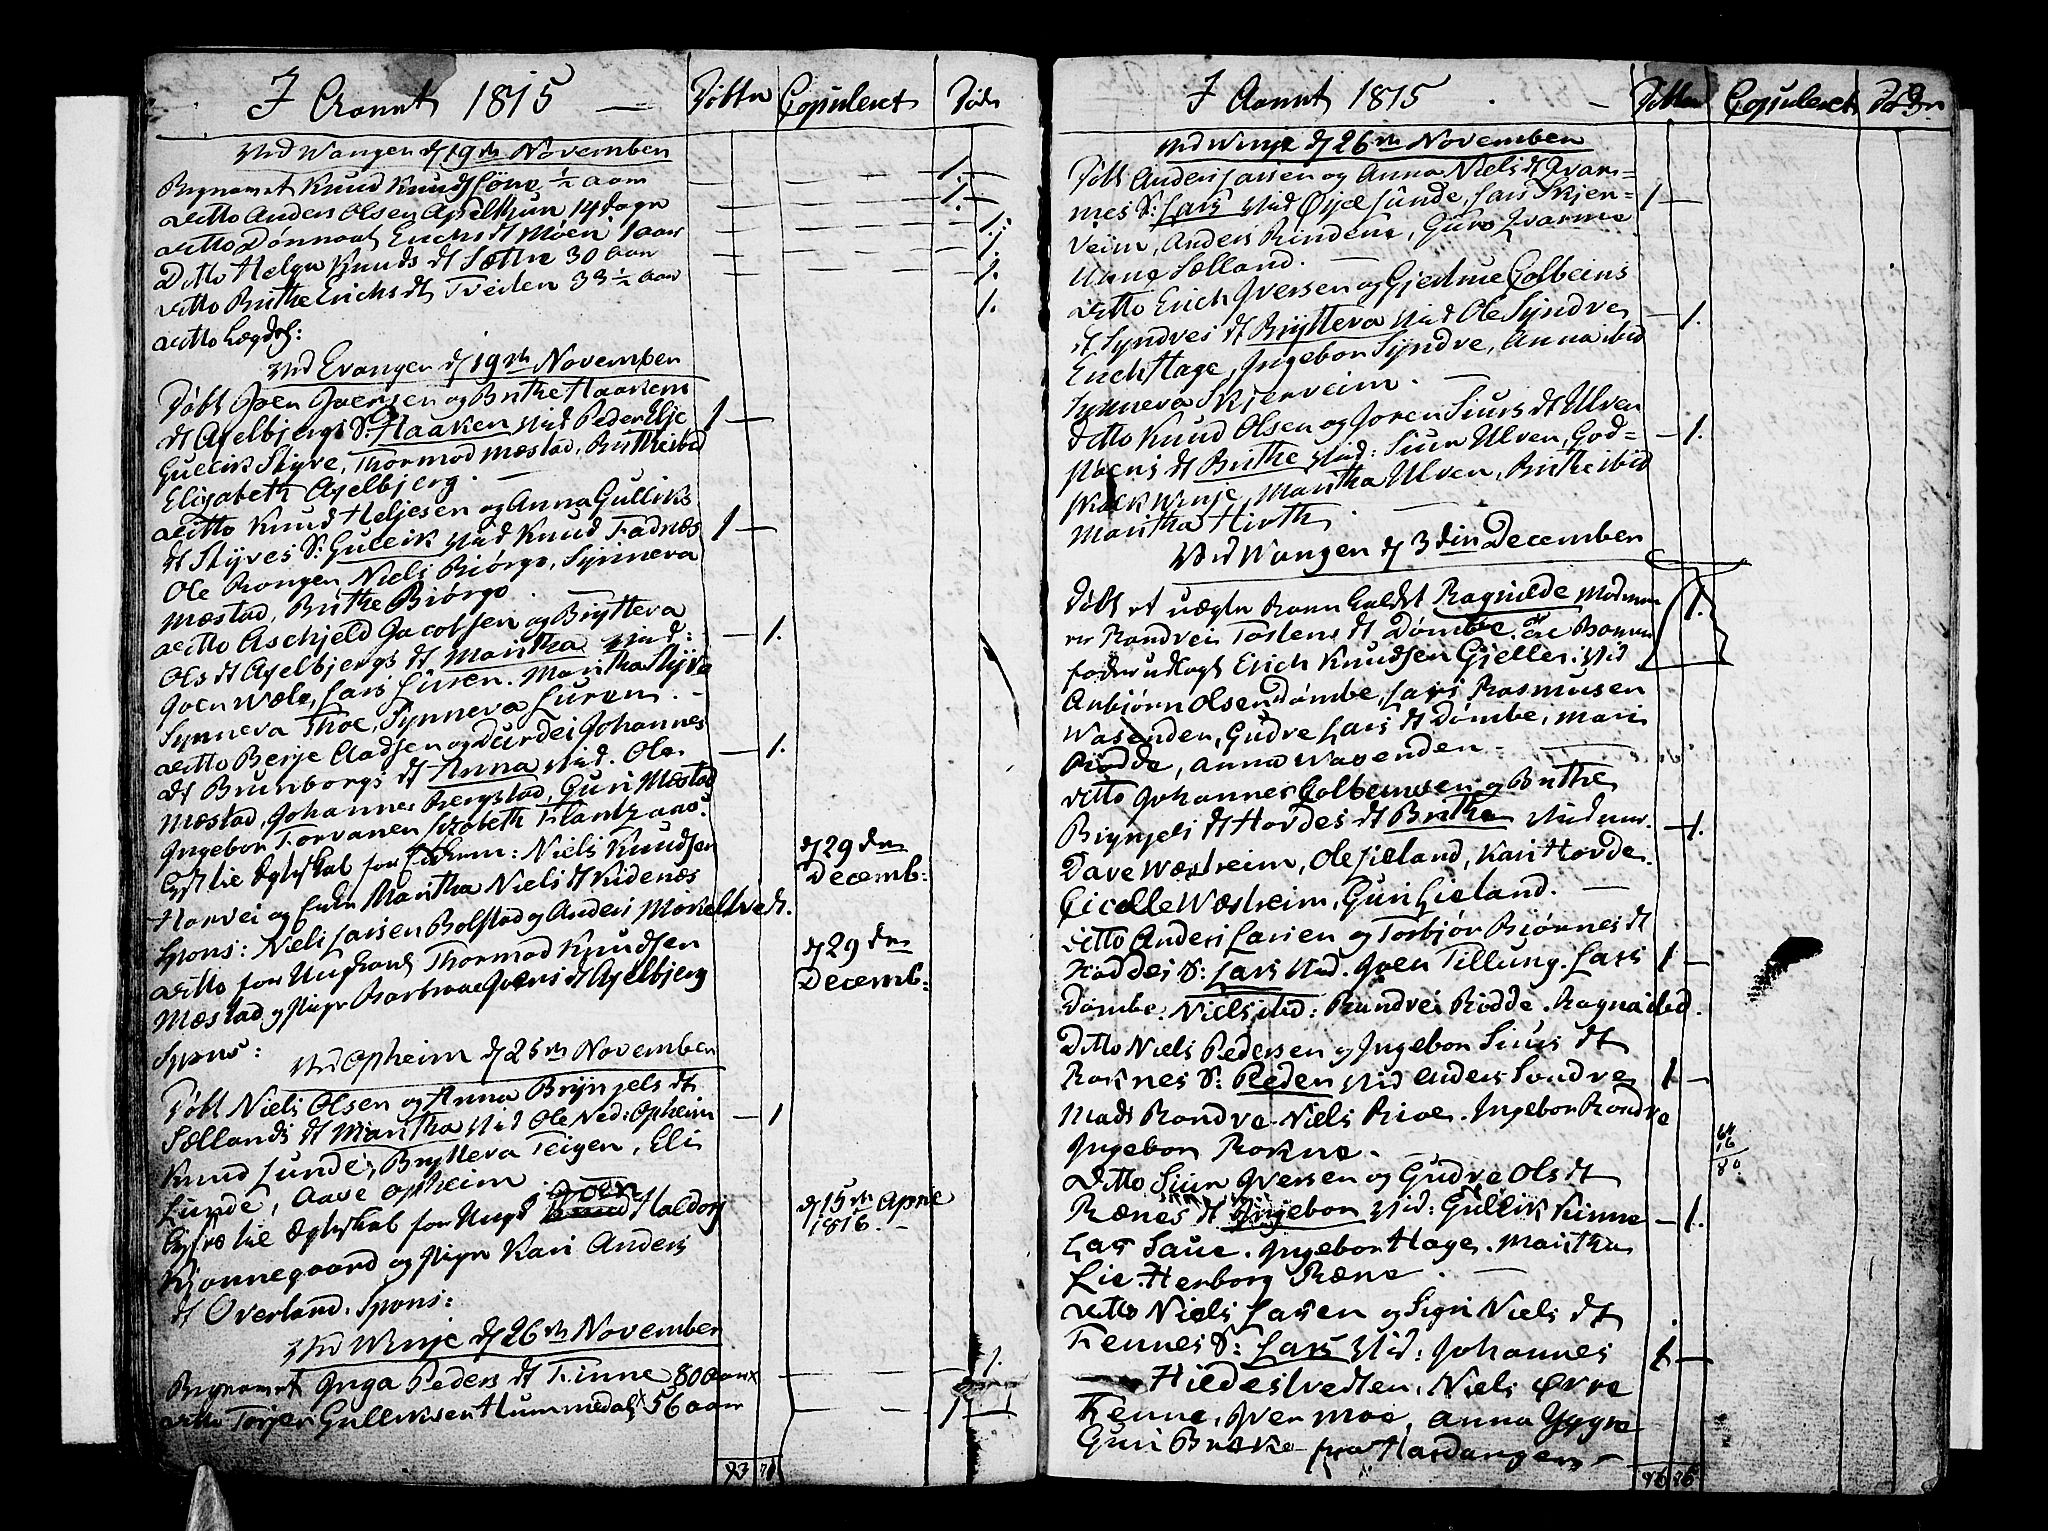 I Aaret 1815 — Døbte Copuleret Døde
Ved Wangen d 19de November
Begravet Knud Knudssøn ½ aar 1.
Ditto Anders Olsen 14 dage 1.
Ditto Erichs dt Moen 1 aar 1.
Ditto Helga Knuds dt Sætre 30 aar 1.
Ditto Brithe Erichs dt Tveiten 33 ½ aar 1.
Ditto 1.
Ved Evangen d 19de November
Døbt Joen Iversen og Brithe Haakens
dt Axelbjergs S: Haaken Vid Peder Elje 1
Gulleik Styve, Thormod Mæstad, Brithe ibid
Elisabeth Axelbjerg.
Ditto Knud Heljesen og Anna Gulliks
dt Styves S: Gulleik Vid Knud Fadnæs 1
Ole Rongen Niels Biørgo, Synneva
Mæstad, Brithe Biørgo.
Ditto Aschjeld Jacobsen og Brytteva
Ols dt Axelbjergs dt Maritha Vid: 1.
Joen Wæle, Lars Liiren. Maritha Styve
Synneva Thoe, Synneva Liiren.
Ditto Berje Aadsen og Durdei Johannes
dt Brunborgs dt Anna Vid. Ole 1.
Mæstad, Johannes Bergstad, Guri Mæstad
Ingebor Torvanen Lisabeth
Lyst til Ægteskab for Enkem: Niels Knudsen d 29de
Horvei og Enke Maritha Niels dt Vidnæs Decemb:
Spons: Niels Larsen Bolstad og Anders Mørkeltvedt.
Ditto for Ungkarl Thormod Knudsen d 29de
Mæstad og Pige Barbroe Joens dt Axelbjerg Decemb:
Spons:
Ved Opheim d 25de November
Døbt Niels Olsen og Anna Brynjels dt
Sællands dt Maritha Vid Ole Ned: Opheim 1
Knud Lunde, Brytteva Teigen, Eli
Lunde, Aase Opheim
Lyst til Ægteskab for Ungk Joen Haldors d 15de April
Kjonnegaard og Pige Kari Anders 1816.
dt Overland. Spons:
Ved Winje d 26de November
Begravet Inga Peders dt Finne 80 aar 1.
Ditto Torjer Gulliksen Hummedal 56 aar 1
93 71
I Aaret 1815 — Døbte Copuleret Døde
Ved Winje d 26de November
Døbt Anders Larsen og Anna Niels dt Qvar-
mes S: Lars Vid Øyel Lunde, Lars Skjer- 1
veim, Anders Rindene, Guro Qvarme
Anna Sælland.
Ditto Erich Iversen og Gjertrue Colbeins
dt Syndves dt Brytteva Vid Ole Syndve 1.
Erich Hage, Ingebor Syndve, Anna ibid
Synneva Skjerveim.
Ditto Knud Olsen og Joren Siurs dt Ulven
dt Brithe Vid: Siur Ulven, God- 1.
Winje, Maritha Ulven, Brithe ibid
Maritha Hirth.
Ved Wangen d 3die December
Døbt et uægte Barn kaldet Ragnilde Moderen 1.
er Randvei Tostens dt Dømbe. Barne
fader udlagt Erich Knudsen Gjelle. Vid
Anbjørn Olsen Dømbe, Lars Rasmusen
Wasenden, Gudve Lars dt Dømbe, Mari
Rødde, Anna Wasenden
Ditto Johannes Colbeinsen og Brithe
Brynjels dt Hordes dt Brithe 1.
Dave Wæsheim, Ole Lieland, Kari Horde
Cicelle Wæsheim, Guri Lieland.
Ditto Anders Larsen og Torbjør Biørnes dt
Røddes S: Lars Vid. Joen Tillung. Lars 1
Dømbe. Niels ibid: Randvei Rødde. Ragna ibid.
Ditto Niels Pedersen og Ingebor Siurs dt
Roknes S: Peder Vid Anders Londve 1
Mads Rondve Niels Rioe. Ingebor Rondve
Ingebor Rokne. 64 16 80
Ditto Siur Iversen og Gudve Ols dt
Rænes dt Ingebor Vid: Gullik Kinne 1.
Lars Saue. Ingebor Hage. Maritha
Lie. Herborg Ræne.
Ditto Niels Larsen og Sigri Niels dt
Fennes S: Lars Vid: Johannes 1
Hildestvedten, Niels Øvre
Fenne, Iver Moe, Anna Yggre
Guri Brække fra Hardanger
96 76